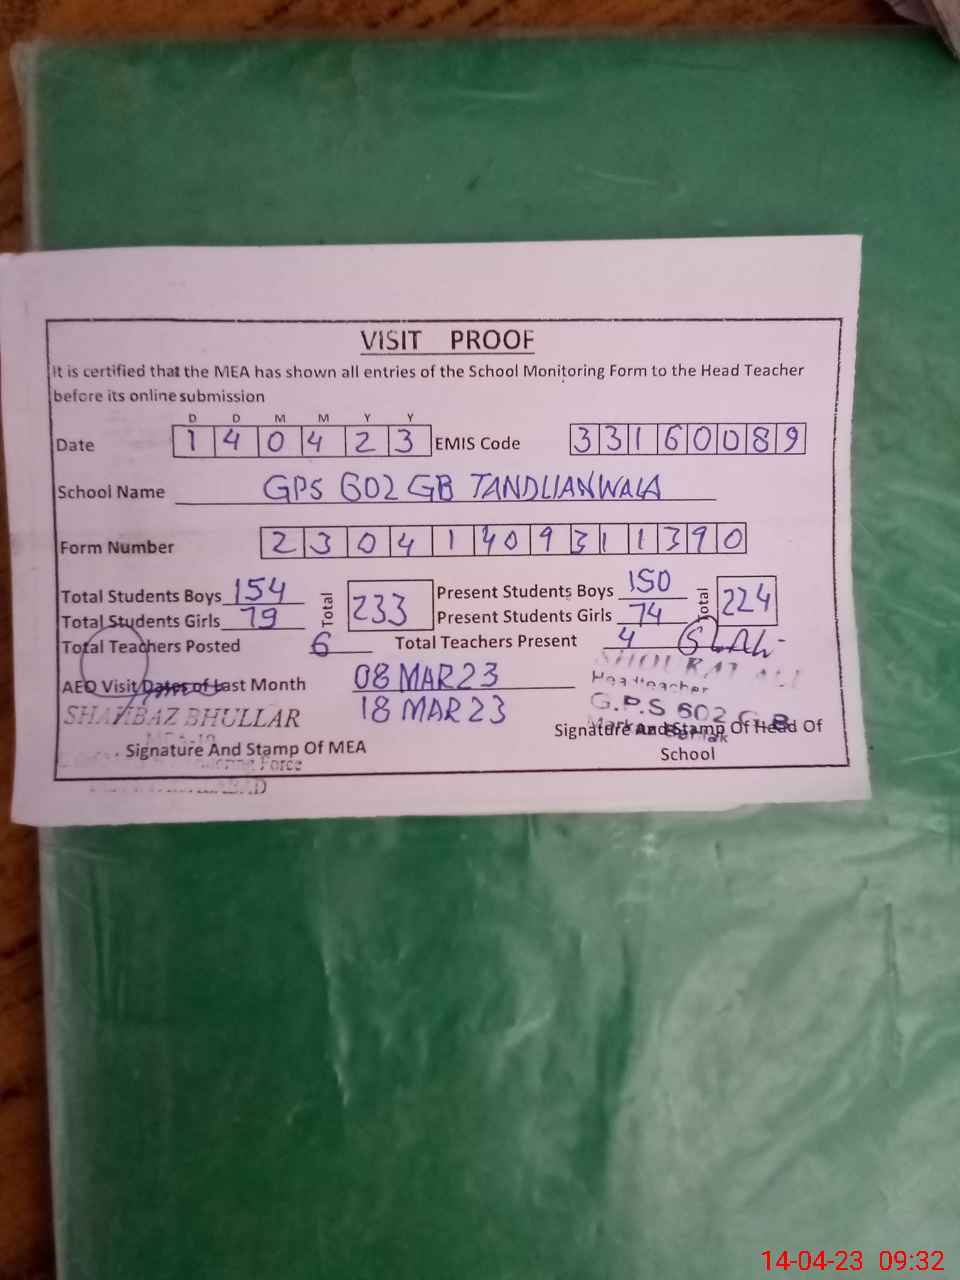 VISIT PROOF
It is certified that the MEA has shown all entries of the School Monitoring Form to the Head Teacher
before its online submission
D D M M Y Y
Date 1 4 0 4 2 3 EMIS Code 3 3 1 6 0 0 8 9
School Name GPS 602 GB TANDLIANWALA
Form Number 2 3 0 4 1 4 0 9 3 1 1 3 9 0
Total Students Boys 154 Total 233 Present Students Boys 150 Total 224
Total Students Girls 79 Present Students Girls 74
Total Teachers Posted 6 Total Teachers Present 4
SHOUKAT ALI
AEO Visit Dates of Last Month 08 MAR 23 Headteacher
SHAHBAZ BHULLAR 18 MAR 23 G.P.S 602 G.B
Signature And Stamp Of MEA Signature And Stamp Of Head Of
School
Force
14-04-23 09:32